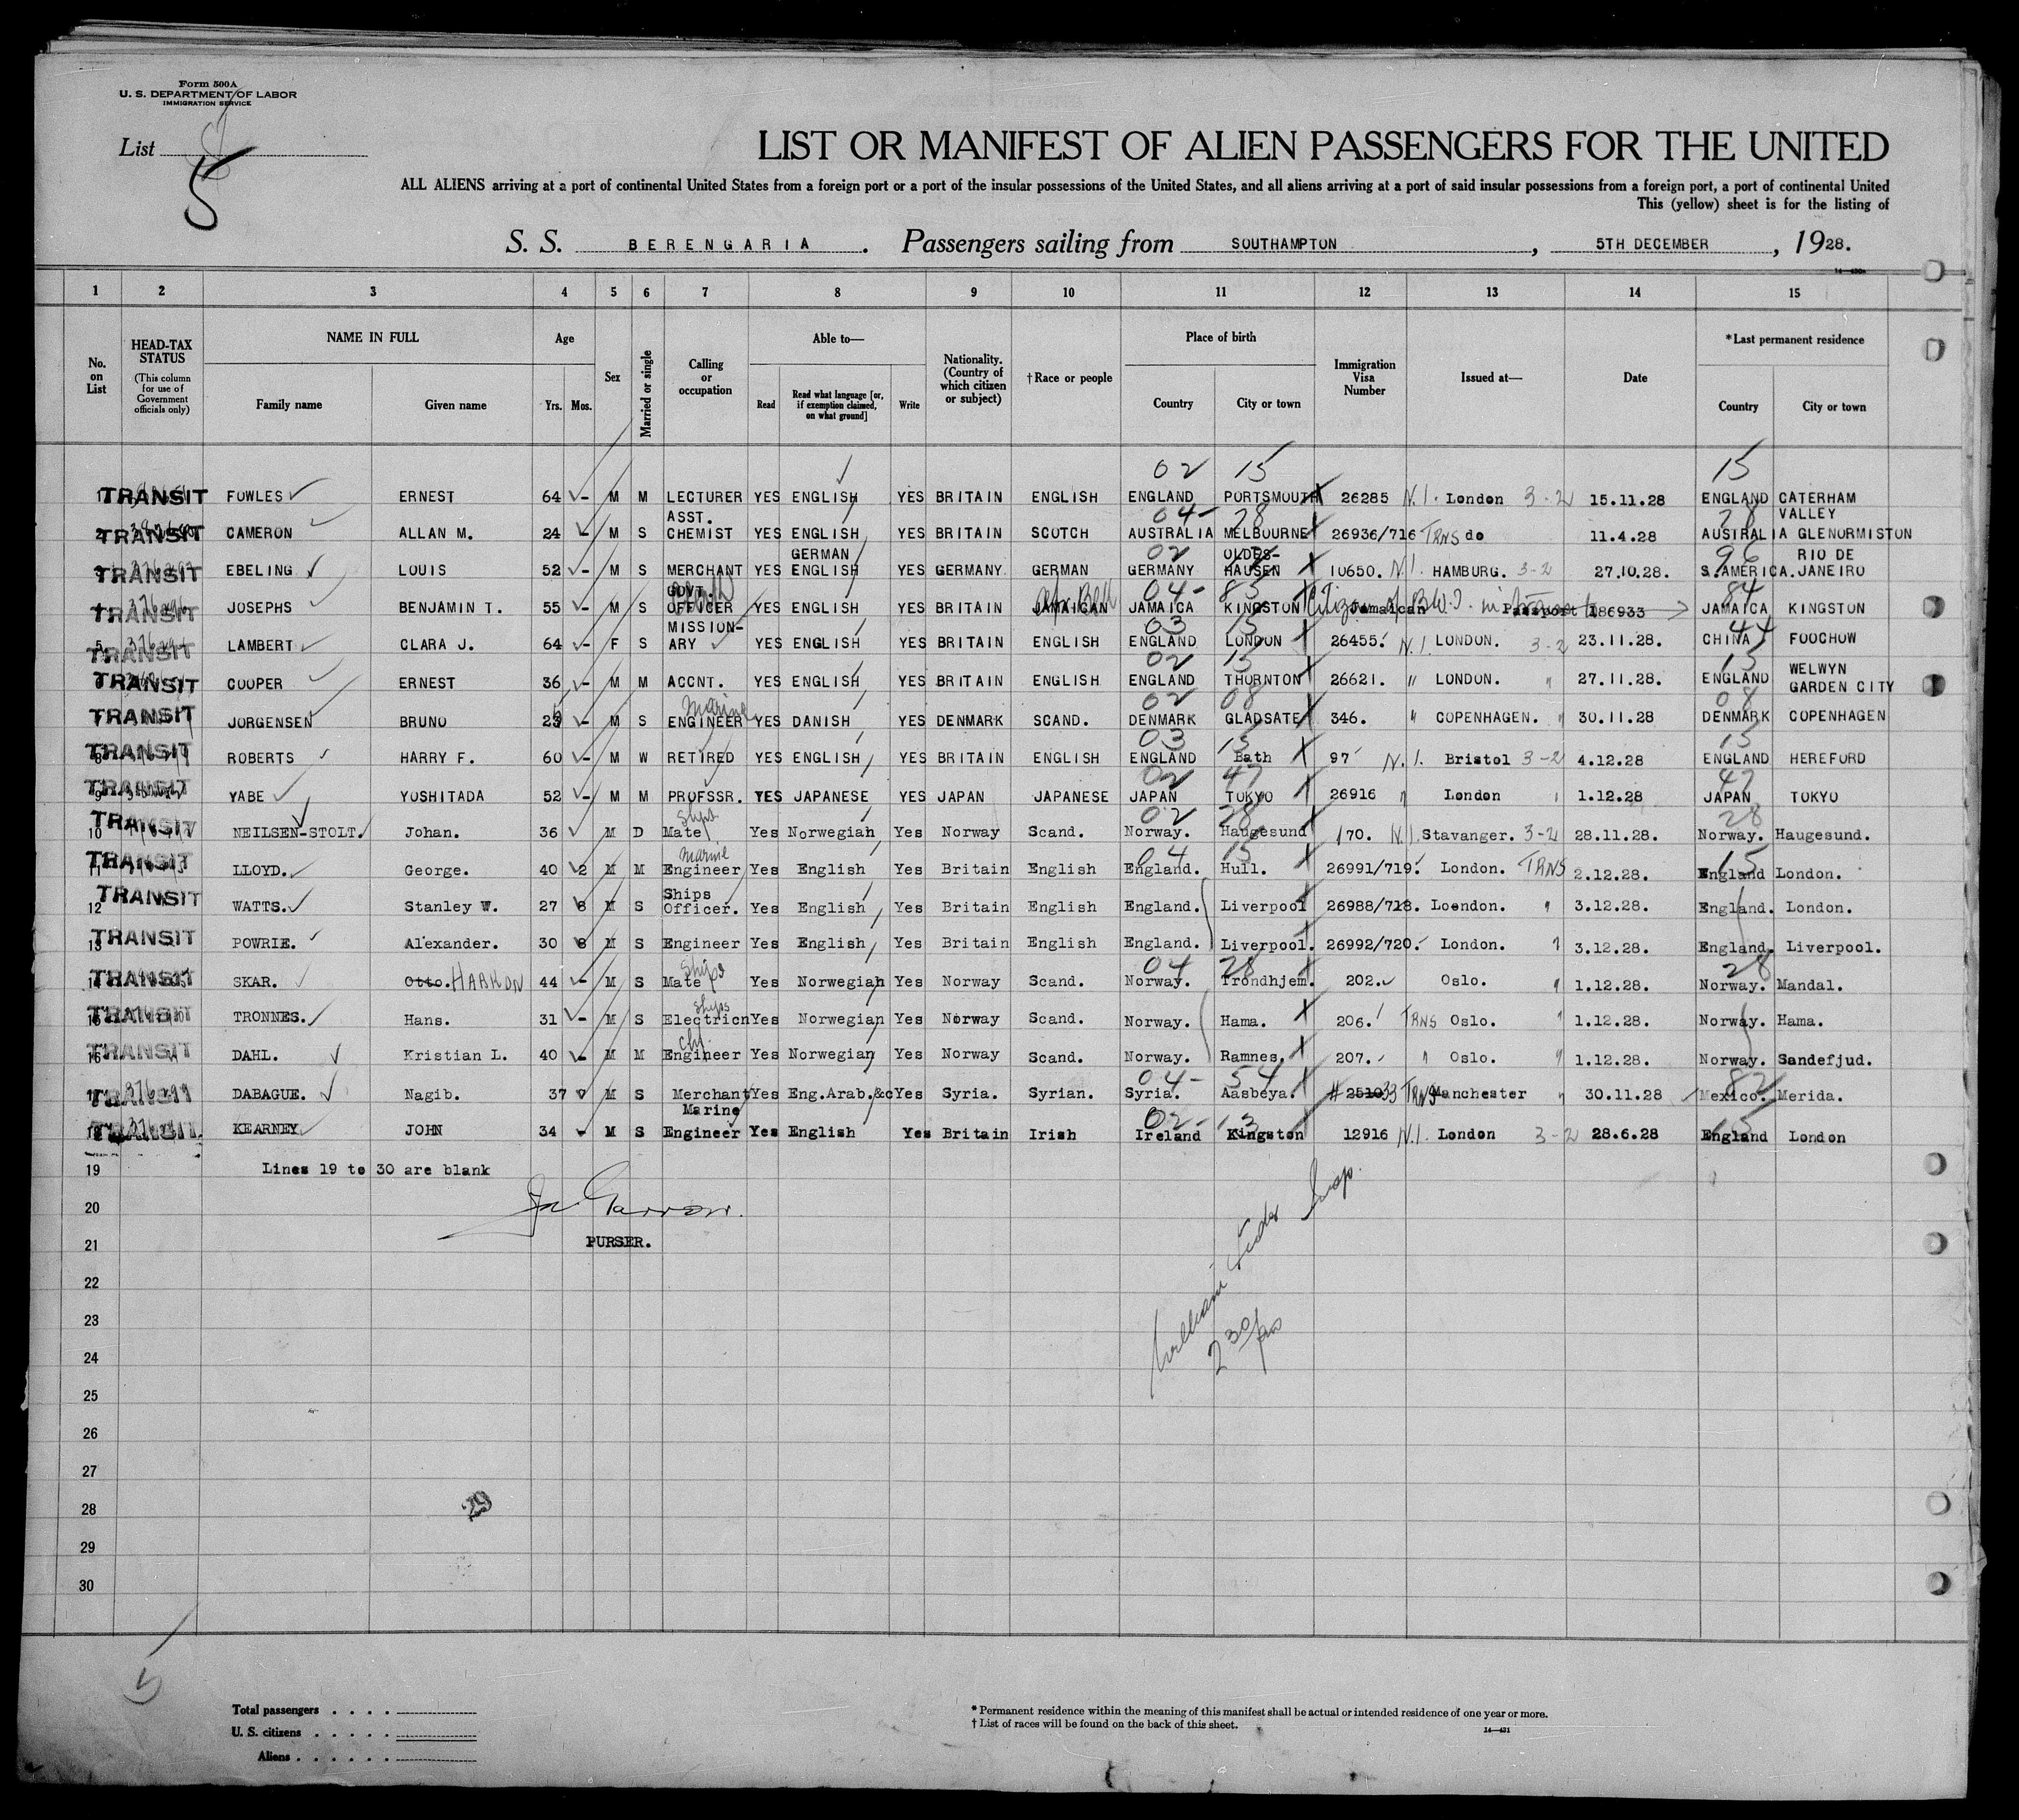 Form 500A
U. S. DEPARTMENT OF LABOR
IMMIGRATION SERVICE
List
5
LIST OR MANIFEST OF ALIEN PASSENGERS FOR THE UNITED
ALL ALIENS arriving at a port of continental United States from a foreign port or a port of the insular possessions of the United States, and all aliens arriving at a port of said insular possessions from a foreign port, a port of continental United
This (yellow) sheet is for the listing of
S. S. BERENGARIA. Passengers sailing from SOUTHAMPTON, 5TH DECEMBER, 1928.
1 2 3 4 5 6 7 8 9 10 11 12 13 14 15
No. on List
HEAD-TAX STATUS
(This column for use of Government officials only)
NAME IN FULL
Family name Given name
Age
Yrs. Mos.
Sex
Married or single
Calling or occupation
Able to—
Read
Read what language [or, if exemption claimed, on what ground]
Write
Nationality. (Country of which citizen or subject)
†Race or people
Place of birth
Country City or town
Immigration Visa Number
Issued at—
Date
*Last permanent residence
Country City or town
02 15 15
1 TRANSIT FOWLES ERNEST 64 - M M LECTURER YES ENGLISH YES BRITAIN ENGLISH ENGLAND PORTSMOUTH 26285 N.I. London 3-2 15.11.28 ENGLAND CATERHAM VALLEY
04- 28 28
2 TRANSIT CAMERON ALLAN M. 24 - M S ASST. CHEMIST YES ENGLISH YES BRITAIN SCOTCH AUSTRALIA MELBOURNE 26936/716 TRNS do 11.4.28 AUSTRALIA GLENORMISTON
02 96
3 TRANSIT EBELING LOUIS 52 - M S MERCHANT YES GERMAN ENGLISH YES GERMANY GERMAN GERMANY OLDES-HAUSEN 10650. N.I. HAMBURG. 3-2 27.10.28. S.AMERICA. RIO DE JANEIRO
04- 85 84
4 TRANSIT JOSEPHS BENJAMIN T. 55 - M S GOVT. OFFICER YES ENGLISH YES BRITAIN JAMAICAN JAMAICA KINGSTON Citizen of B.W.I. in Jamaican Passport 186933 JAMAICA KINGSTON
03 15 44
5 TRANSIT LAMBERT CLARA J. 64 - F S MISSION-ARY YES ENGLISH YES BRITAIN ENGLISH ENGLAND LONDON 26455. N.I. LONDON. 3-2 23.11.28. CHINA FOOCHOW
02 15 15
6 TRANSIT COOPER ERNEST 36 - M M ACCNT. YES ENGLISH YES BRITAIN ENGLISH ENGLAND THORNTON 26621. " LONDON. " 27.11.28. ENGLAND WELWYN GARDEN CITY
02 08 08
TRANSIT JORGENSEN BRUNO 23 - M S Marine ENGINEER YES DANISH YES DENMARK SCAND. DENMARK GLADSATE 346. " COPENHAGEN. " 30.11.28 DENMARK COPENHAGEN
03 15 15
8 TRANSIT ROBERTS HARRY F. 60 - M W RETIRED YES ENGLISH YES BRITAIN ENGLISH ENGLAND Bath 97 N.I. Bristol 3-2 4.12.28 ENGLAND HEREFORD
02 47 47
9 TRANSIT YABE YOSHITADA 52 - M M PROFSSR. YES JAPANESE YES JAPAN JAPANESE JAPAN TOKYO 26916 " London " 1.12.28 JAPAN TOKYO
02 28 28
10 TRANSIT NEILSEN-STOLT. Johan. 36 M D Ships Mate Yes Norwegian Yes Norway Scand. Norway. Haugesund 170. N.I. Stavanger. 3-2 28.11.28. Norway. Haugesund.
04 15 15
11 TRANSIT LLOYD. George. 40 2 M M Marine Engineer Yes English Yes Britain English England. Hull. 26991/719. London. TRNS 2.12.28. England London.
12 TRANSIT WATTS. Stanley W. 27 8 M S Ships Officer. Yes English Yes Britain English England. Liverpool 26988/718. Loendon. " 3.12.28. England. London.
13 TRANSIT POWRIE. Alexander. 30 8 M S Engineer Yes English Yes Britain English England. Liverpool. 26992/720. London. " 3.12.28. England. Liverpool.
04 28 28
14 TRANSIT SKAR. Otto. HAAKON 44 - M S Ships Mate Yes Norwegian Yes Norway Scand. Norway. Trondhjem. 202. Oslo. " 1.12.28. Norway. Mandal.
15 TRANSIT TRONNES. Hans. 31 - M S Ships Electricn Yes Norwegian Yes Norway Scand. Norway. Hama. 206. TRNS Oslo. " 1.12.28. Norway. Hama.
16 TRANSIT DAHL. Kristian L. 40 - M M Chf. Engineer Yes Norwegian Yes Norway Scand. Norway. Ramnes. 207. " Oslo. " 1.12.28. Norway. Sandefjud.
04- 54 82
17 TRANSIT DABAGUE. Nagib. 37 M S Merchant Yes Eng.Arab.&c Yes Syria. Syrian. Syria. Aasbeya. # 251033 TRNS Manchester " 30.11.28 Mexico. Merida.
02- 13 15
18 TRANSIT KEARNEY JOHN 34 - M S Marine Engineer Yes English Yes Britain Irish Ireland Kingston 12916 N.I. London 3-2 28.6.28 England London
19 Lines 19 to 30 are blank
20
21 PURSER.
22
23
24
25
26
27
28
29
29
30
William Insp.
2 30 pm
5
Total passengers
U. S. citizens
Aliens
* Permanent residence within the meaning of this manifest shall be actual or intended residence of one year or more.
† List of races will be found on the back of this sheet.
14—431